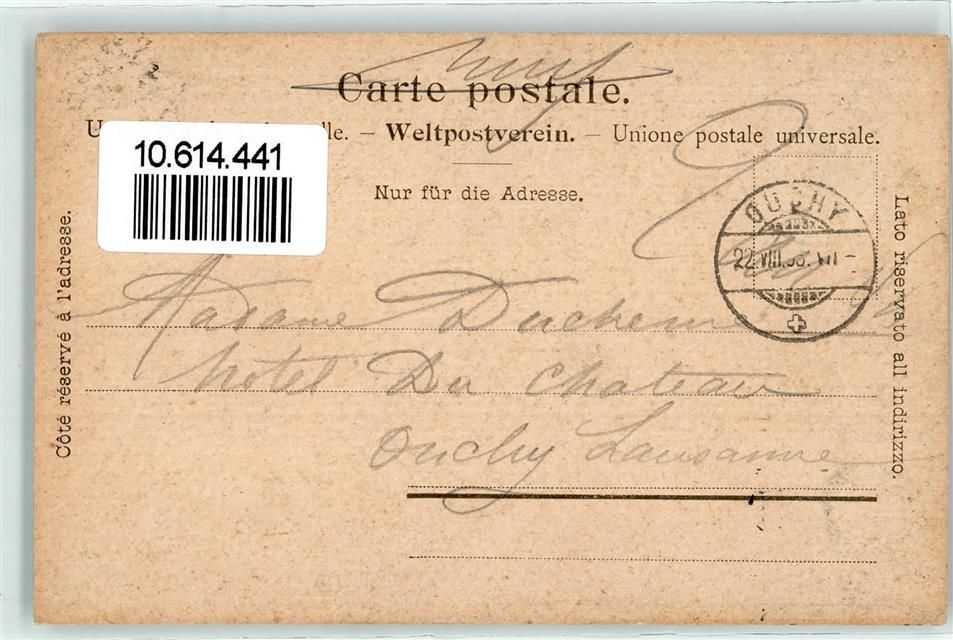 Carte postale.
U lle. – Weltpostverein. – Unione postale universale.
10.614.441
Nur für die Adresse.
Côté réservé à l'adresse.
Lato riservato all indirizzo.
OUCHY
22. VIII.
Madame Duchemin
Hotel Du Chateau
Ouchy Lausanne